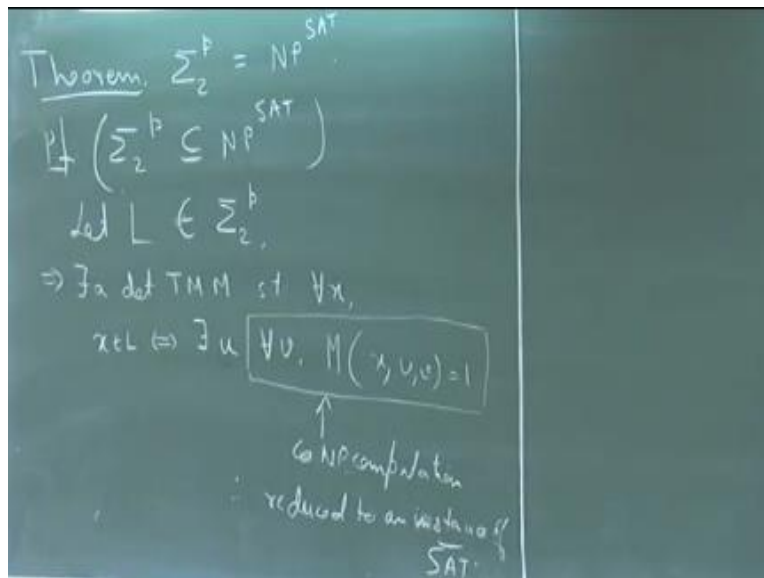 Theorem. Σ₂ᵖ = NP^SAT.
Pf (Σ₂ᵖ ⊆ NP^SAT)
Let L ∈ Σ₂ᵖ,
⇒ ∃ a det TM M st ∀x,
x∈L ⇔ ∃u ∀v, M(x,u,v)=1
↑
coNP computation
∴ reduced to an instance of
SAT.